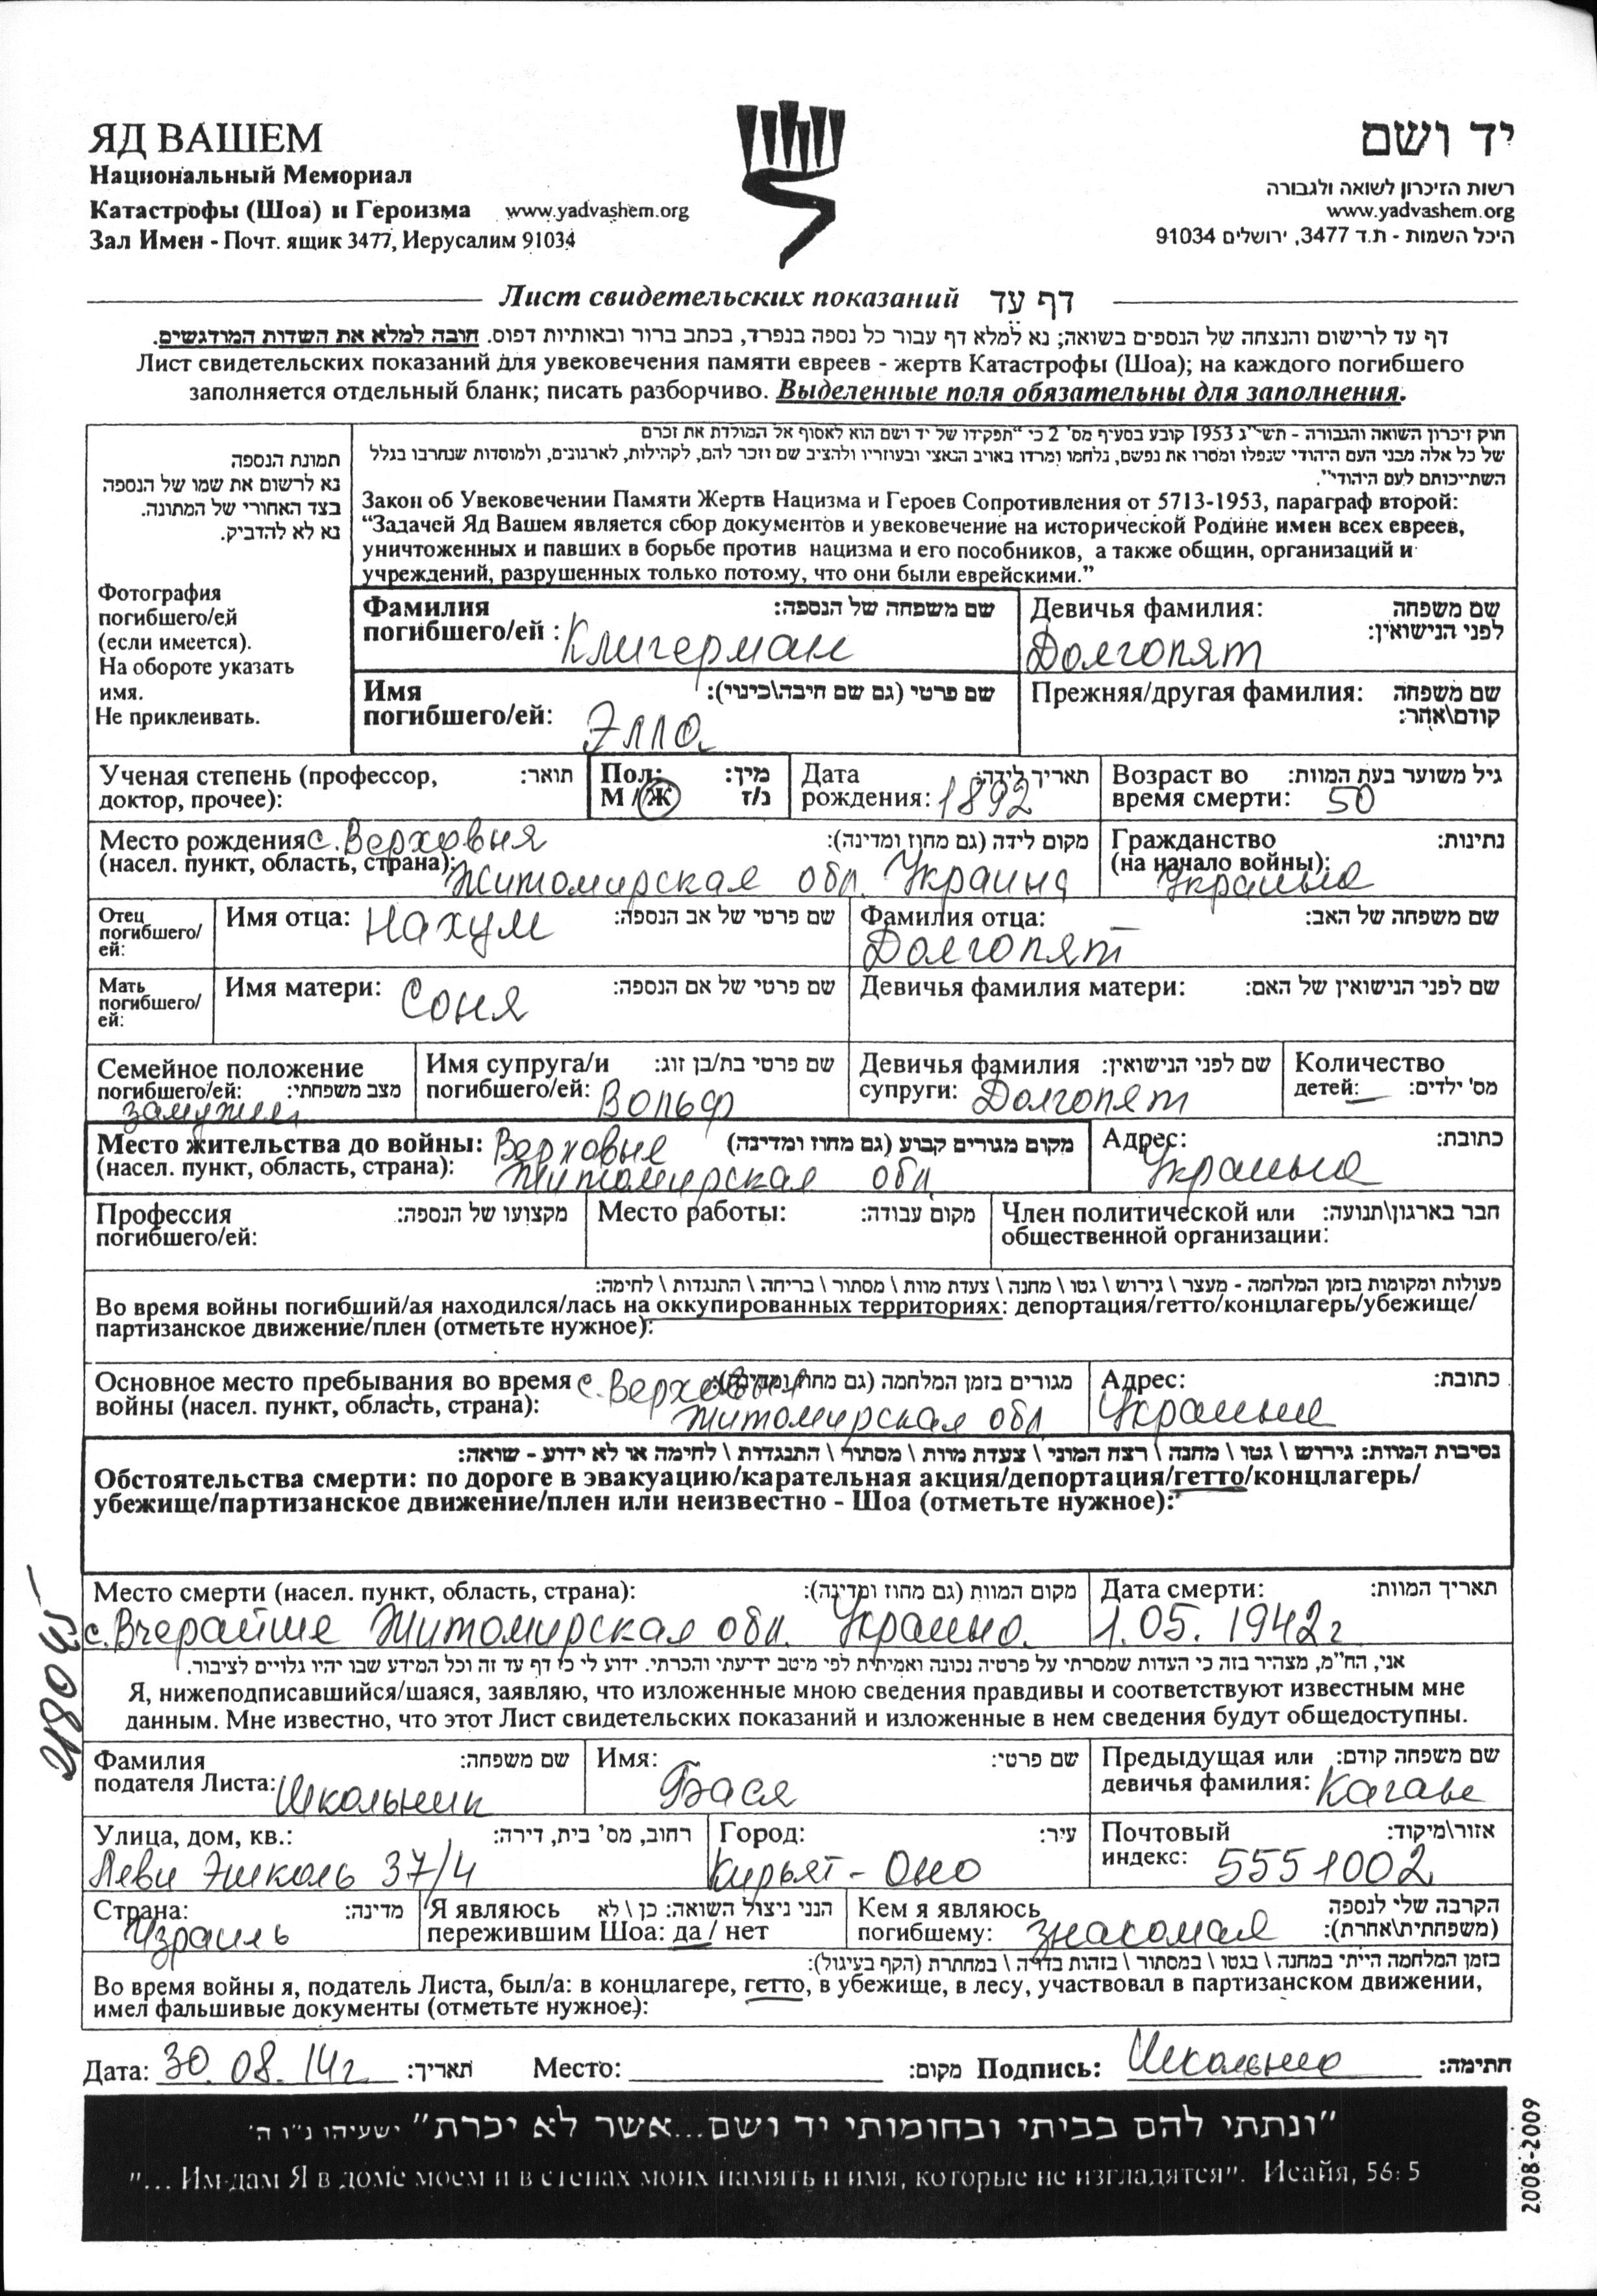 ЯД ВАШЕМ
Национальный Мемориал
Катастрофы (Шоа) и Героизма www.yadvashem.org
Зал Имен - Почт. ящик 3477, Иерусалим 91034
יד ושם
רשות הזיכרון לשואה ולגבורה
www.yadvashem.org
היכל השמות - ת.ד 3477, ירושלים 91034
Лист свидетельских показаний דף עד
דף עד לרישום והנצחה של הנספים בשואה; נא למלא דף עבור כל נספה בנפרד, בכתב ברור ובאותיות דפוס. חובה למלא את השדות המודגשים.
Лист свидетельских показаний для увековечения памяти евреев - жертв Катастрофы (Шоа); на каждого погибшего
заполняется отдельный бланк; писать разборчиво. Выделенные поля обязательны для заполнения.
תמונת הנספה
נא לרשום את שמו של הנספה
בצד האחורי של התמונה.
נא לא להדביק.
Фотография
погибшего/ей
(если имеется).
На обороте указать
имя.
Не приклеивать.
חוק זיכרון השואה והגבורה - תשי"ג 1953 קובע בסעיף מס' 2 כי "תפקידו של יד ושם הוא לאסוף אל המולדת את זכרם
של כל אלה מבני העם היהודי שנפלו ומסרו את נפשם, נלחמו ומרדו באויב הנאצי ובעוזריו ולהציב שם וזכר להם, לקהילות, לארגונים, ולמוסדות שנחרבו בגלל
השתייכותם לעם היהודי".
Закон об Увековечении Памяти Жертв Нацизма и Героев Сопротивления от 5713-1953, параграф второй:
“Задачей Яд Вашем является сбор документов и увековечение на исторической Родине имен всех евреев,
уничтоженных и павших в борьбе против нацизма и его пособников, а также общин, организаций и
учреждений, разрушенных только потому, что они были еврейскими.”
Фамилия שם משפחה של הנספה:
погибшего/ей : Клигерман
Девичья фамилия: שם משפחה
לפני הנישואין:
Долгопят
Имя שם פרטי (גם שם חיבה\כינוי):
погибшего/ей: Элла
Прежняя/другая фамилия: שם משפחה
קודם\אחר:
Ученая степень (профессор, תואר:
доктор, прочее):
Пол: מין:
М / Ж ז/נ
Дата תאריך לידה:
рождения: 1892
Возраст во גיל משוער בעת המוות:
время смерти: 50
Место рождения с. Верховня מקום לידה (גם מחוז ומדינה):
(насел. пункт, область, страна): Житомирская обл. Украина
Гражданство נתינות:
(на начало войны): Украина
Отец
погибшего/
ей:
Имя отца: Нахум שם פרטי של אב הנספה:
Фамилия отца: שם משפחה של האב:
Долгопят
Мать
погибшего/
ей:
Имя матери: Соня שם פרטי של אם הנספה:
Девичья фамилия матери: שם לפני הנישואין של האם:
Семейное положение
погибшего/ей: מצב משפחתי:
замужем
Имя супруга/и שם פרטי בת/בן זוג:
погибшего/ей: Вольф
Девичья фамилия שם לפני הנישואין:
супруги: Долгопят
Количество
детей: — מס' ילדים:
Место жительства до войны: Верховня מקום מגורים קבוע (גם מחוז ומדינה)
(насел. пункт, область, страна): Житомирская обл
Адрес: כתובת:
Украина
Профессия מקצועו של הנספה:
погибшего/ей:
Место работы: מקום עבודה:
Член политической или חבר בארגון\תנועה:
общественной организации:
פעולות ומקומות בזמן המלחמה - מעצר \ גירוש \ גטו \ מחנה \ צעדת מוות \ מסתור \ בריחה \ התנגדות \ לחימה:
Во время войны погибший/ая находился/лась на оккупированных территориях: депортация/гетто/концлагерь/убежище/
партизанское движение/плен (отметьте нужное):
Основное место пребывания во время с. Верховня מגורים בזמן המלחמה (גם מחוז ומדינה):
войны (насел. пункт, область, страна): Житомирская обл
Адрес: כתובת:
Украина
נסיבות המוות: גירוש \ גטו \ מחנה \ רצח המוני \ צעדת מוות \ מסתור \ התנגדות \ לחימה או לא ידוע - שואה:
Обстоятельства смерти: по дороге в эвакуацию/карательная акция/депортация/гетто/концлагерь/
убежище/партизанское движение/плен или неизвестно - Шоа (отметьте нужное):
Место смерти (насел. пункт, область, страна): מקום המוות (גם מחוז ומדינה):
с. Вчерайше Житомирская обл. Украина
Дата смерти: תאריך המוות:
1.05.1942г
אני, הח"מ, מצהיר בזה כי העדות שמסרתי על פרטיה נכונה ואמיתית לפי מיטב ידיעתי והכרתי. ידוע לי כי דף עד זה וכל המידע שבו יהיו גלויים לציבור.
Я, нижеподписавшийся/шаяся, заявляю, что изложенные мною сведения правдивы и соответствуют известным мне
данным. Мне известно, что этот Лист свидетельских показаний и изложенные в нем сведения будут общедоступны.
Фамилия שם משפחה:
подателя Листа: Школьник
Имя: שם פרטי:
Бася
Предыдущая или שם משפחה קודם:
девичья фамилия: Каган
Улица, дом, кв.: רחוב, מס' בית, דירה:
Леви Эшколь 37/4
Город: עיר:
Кирьят-Оно
Почтовый אזור\מיקוד:
индекс: 5551002
Страна: מדינה:
Израиль
Я являюсь הנני ניצול השואה: כן \ לא
пережившим Шоа: да / нет
Кем я являюсь הקרבה שלי לנספה
погибшему: знакомая (משפחתית\אחרת):
בזמן המלחמה הייתי במחנה \ בגטו \ במסתור \ בזהות בדויה \ במחתרת (הקף בעיגול):
Во время войны я, податель Листа, был/а: в концлагере, гетто, в убежище, в лесу, участвовал в партизанском движении,
имел фальшивые документы (отметьте нужное):
Дата: 30.08.14г. תאריך: Место: מקום: Подпись: Школьник חתימה:
"ונתתי להם בביתי ובחומותי יד ושם...אשר לא יכרת" ישעיהו נ"ו ה'
"... Им дам Я в доме моем и в стенах моих память и имя, которые не изгладятся". Исайя, 56: 5
2008-2009